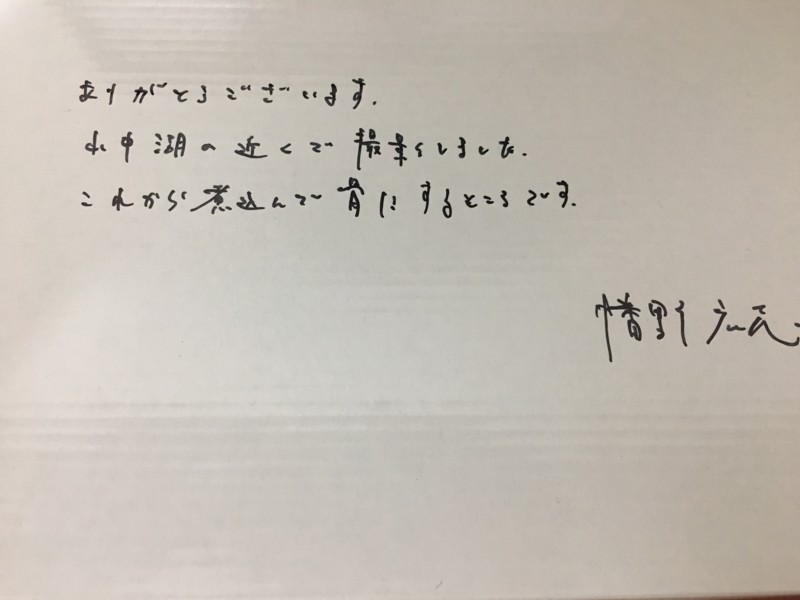 ありがとうございます.
中湖の近くで しました.
これから煮込んで骨にするところです.